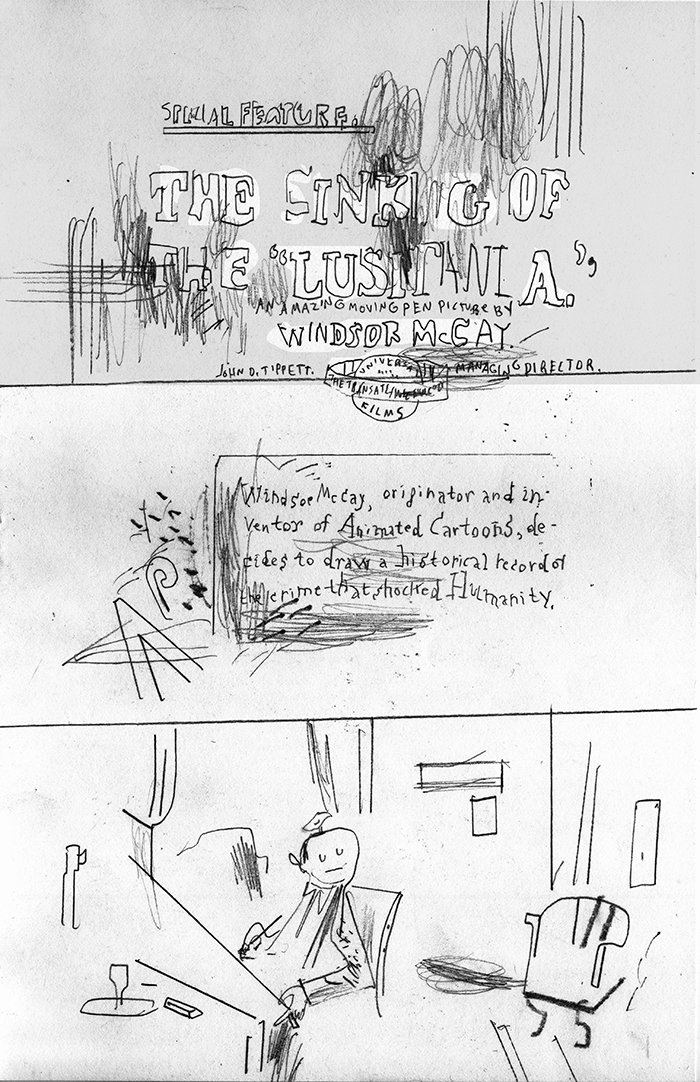 SPECIAL FEATURE.
THE SINKING OF
THE "LUSITANIA.",
AN AMAZING MOVING PEN PICTURE BY
WINDSOR McCAY
JOHN D. TIPPETT. MANAGING DIRECTOR.
THE
FILMS
Windsor McCay, originator and in-
ventor of Animated Cartoons, de-
cides to draw a historical record of
the crime that shocked Humanity.